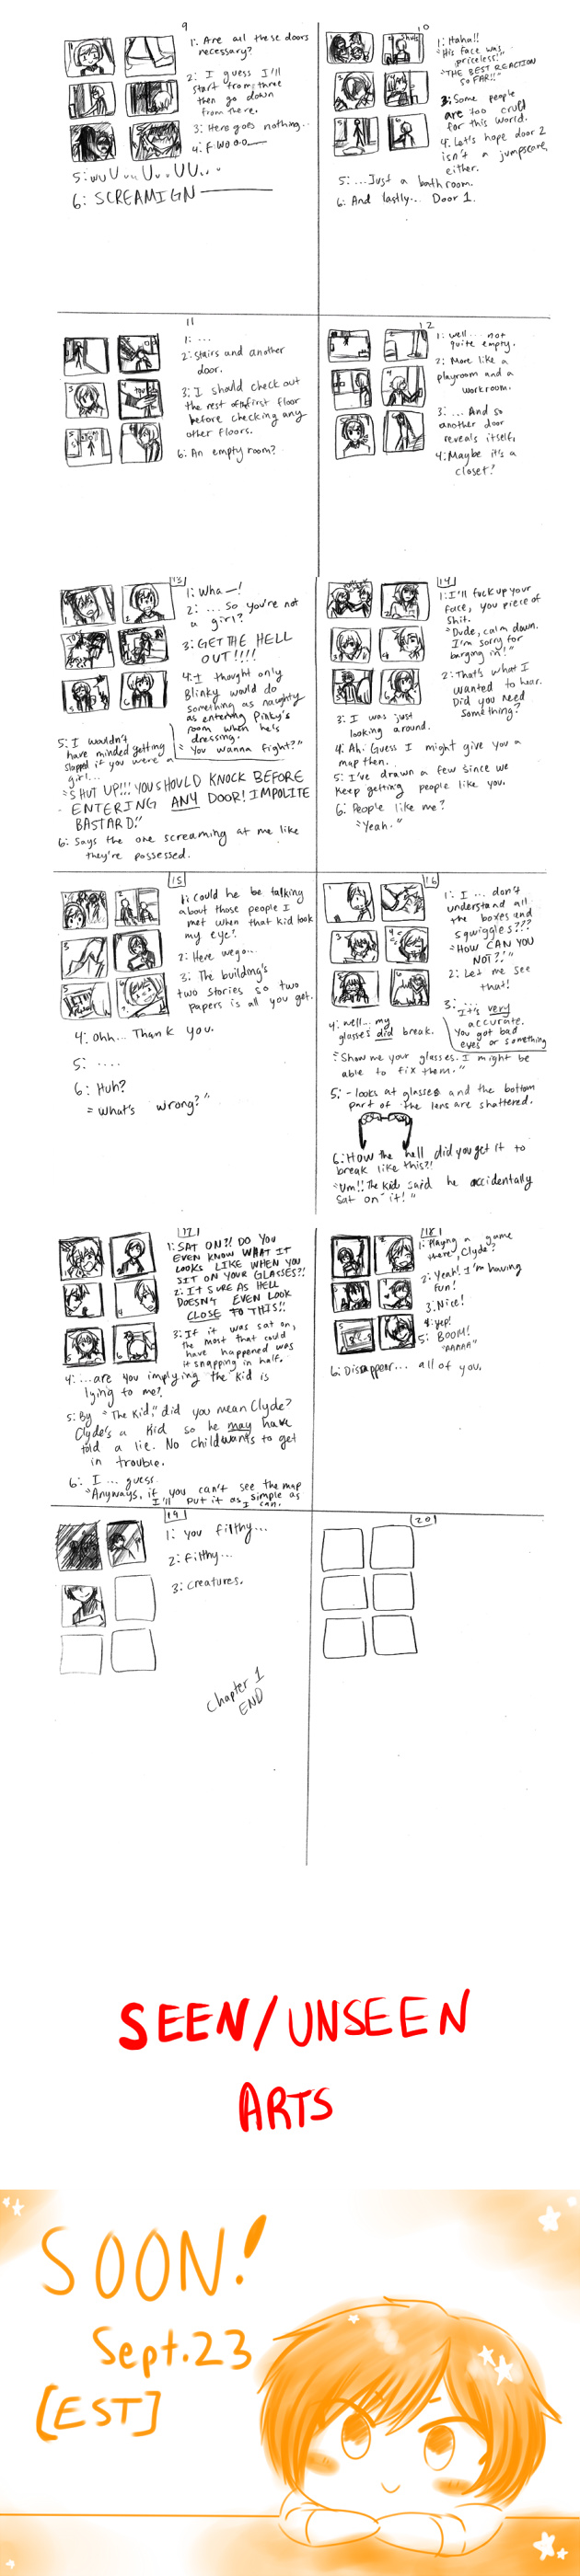 9
1: Are all these doors
necessary?
2: I guess I'll
start from three
then go down
from there.
3: Here goes nothing...
4: Fwooo—
5: wuUuuUuuUU...
6: SCREAMIGN
10
1: Haha!!
"His face was
priceless!"
"THE BEST REACTION
SO FAR!!"
3: Some people
are too cruel
for this world.
4: Let's hope door 2
isn't a jumpscare,
either.
5: ...Just a bathroom.
6: And lastly... Door 1.
11
1: ...
2: Stairs and another
door.
3: I should check out
the rest of the first floor
before checking any
other floors.
6: An empty room?
12
1: Well... not
quite empty.
2: More like a
playroom and a
workroom.
3: ... And so
another door
reveals itself.
4: Maybe it's a
closet?
13
1: Wha—!
2: ... So you're not
a girl?
3: GET THE HELL
OUT!!!!
4: I thought only
Blinky would do
something as naughty
as entering Pinky's
room when he's
dressing.
"You wanna fight?"
5: I wouldn't
have minded getting
slapped if you were a
girl...
"SHUT UP!!! YOU SHOULD KNOCK BEFORE
ENTERING ANY DOOR! IMPOLITE
BASTARD."
6: Says the one screaming at me like
they're possessed.
14
1: I'll fuck up your
face, you piece of
shit.
"Dude, calm down.
I'm sorry for
barging in!"
2: That's what I
wanted to hear.
Did you need
something?
3: I was just
looking around.
4: Ah. Guess I might give you a
map then.
5: I've drawn a few since we
keep getting people like you.
6: People like me?
"Yeah."
15
1: Could he be talking
about those people I
met when that kid took
my eye?
2: Here we go...
3: The building's
two stories so two
papers is all you get.
4: Ohh... Thank you.
5: ....
6: Huh?
"What's wrong?"
16
1: I... don't
understand all
the boxes and
squiggles???
"HOW CAN YOU
NOT?!"
2: Let me see
that!
3: ...
It's very
accurate.
You got bad
eyes or something
4: Well... my
glasses did break.
"Show me your glasses. I might be
able to fix them."
5: -looks at glasses and the bottom
part of the lens are shattered.
6: How the hell did you get it to
break like this?!
"Um!! The kid said he accidentally
sat on it!"
17
1: SAT ON?! DO YOU
EVEN KNOW WHAT IT
LOOKS LIKE WHEN YOU
SIT ON YOUR GLASSES?!
2: IT SURE AS HELL
DOESN'T EVEN LOOK
CLOSE TO THIS!!
3: If it was sat on,
the most that could
have happened was
it snapping in half.
4: ...are you implying the kid is
lying to me?
5: By "The kid," did you mean Clyde?
Clyde's a kid so he may have
told a lie. No child wants to get
in trouble.
6: I... guess.
"Anyways, if you can't see the map
I'll put it as simple as
I can.
18
1: Playing a game
there, Clyde?
2: Yeah! I'm having
fun!
3: Nice!
4: Yep!
5: BOOM!
"AAAAA"
6: Disappear... all of you.
19
1: You filthy...
2: filthy...
3: creatures.
Chapter 1
END
20
SEEN/UNSEEN
ARTS
SOON!
Sept.23
[EST]